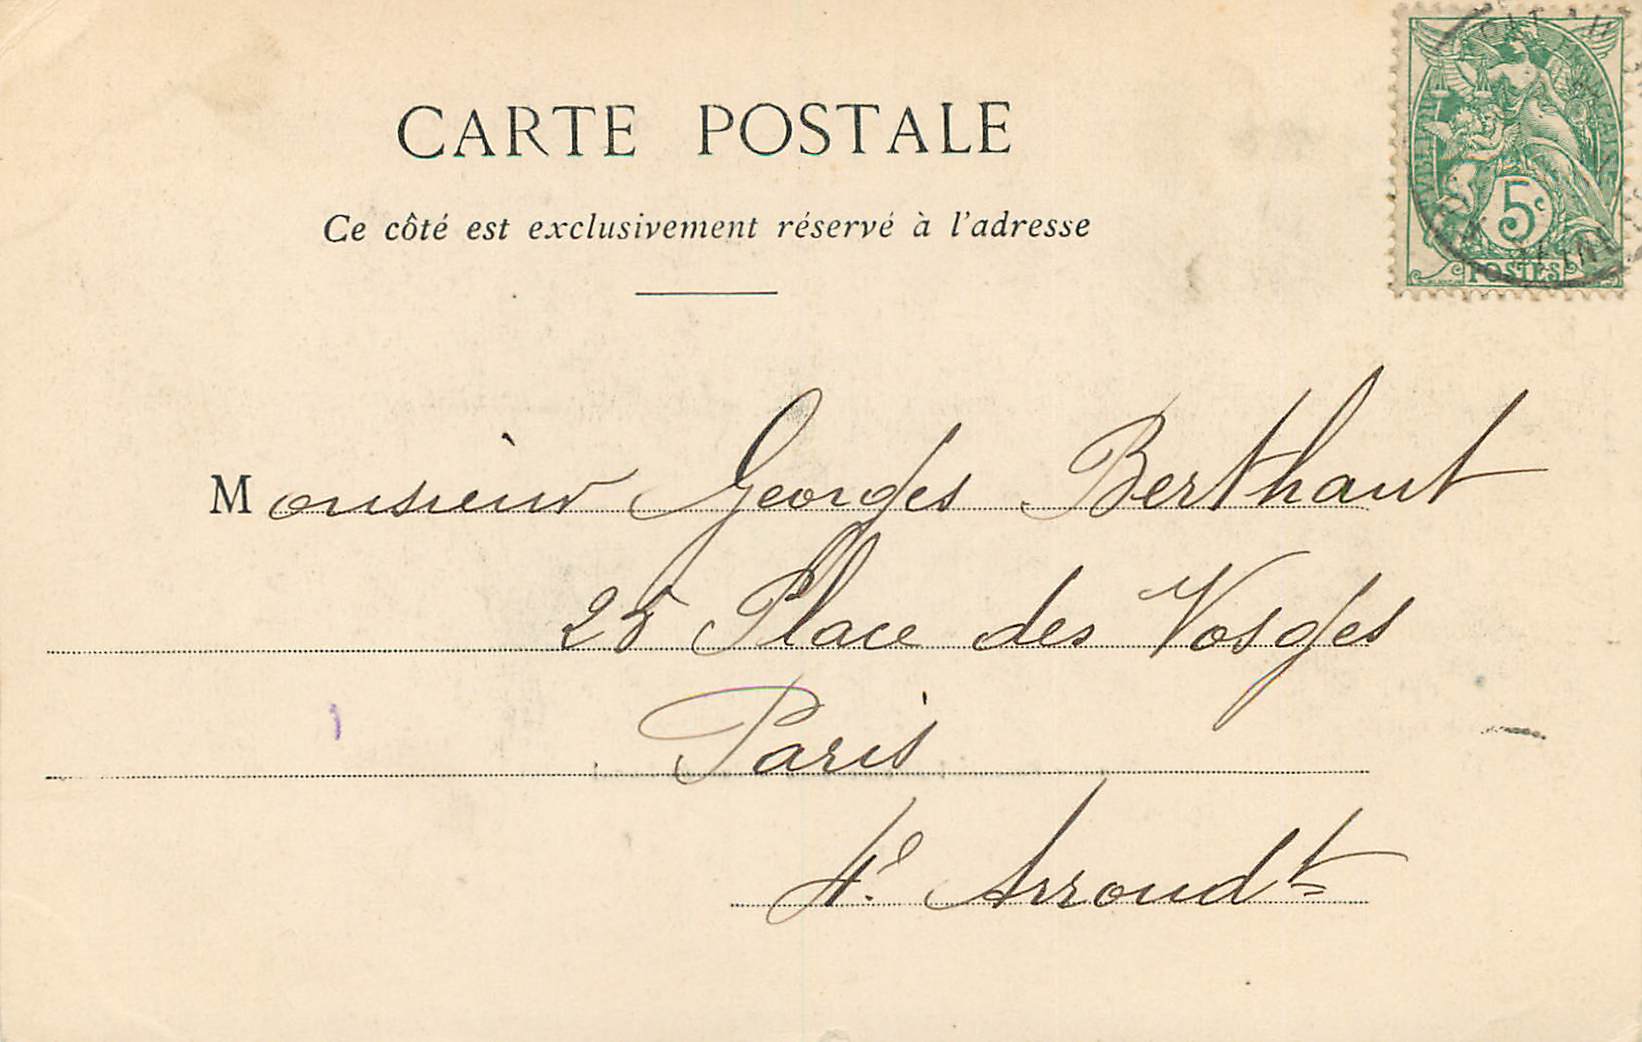 CARTE POSTALE
Ce côté est exclusivement réservé à l'adresse
5c
POSTES
Monsieur Georges Berthaut
25 Place des Vosges
Paris
4e Arroudt